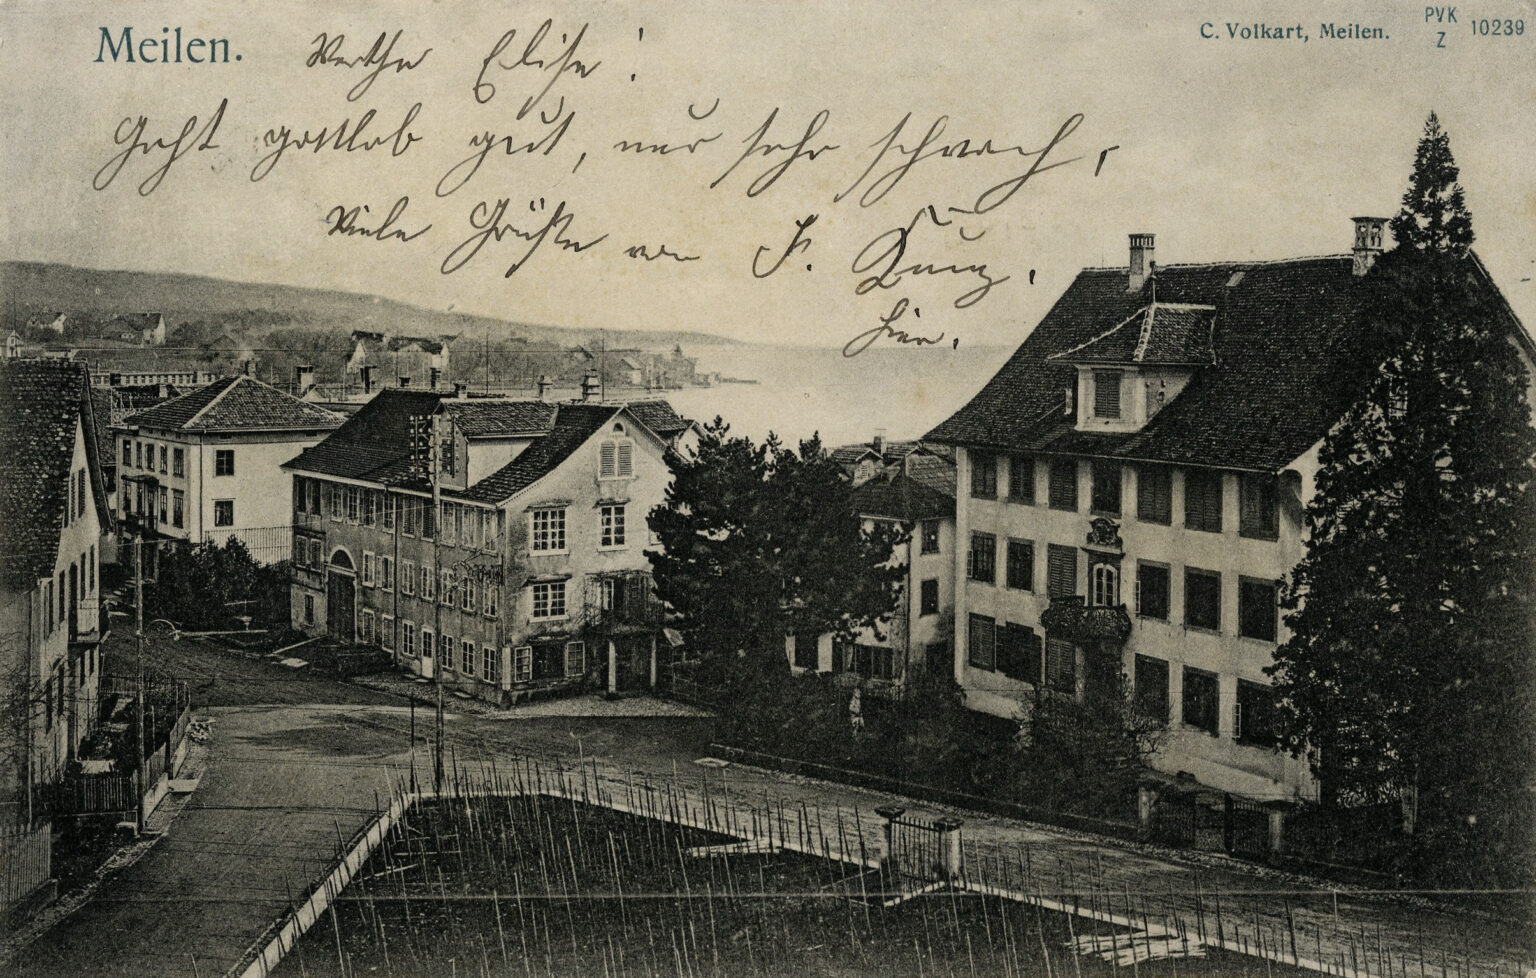 Meilen.
C. Volkart, Meilen.
PVK
Z 10239
Werthe Elise!
Geht gottlob gut, nur sehr schwach,
Viele Grüße von F. Kunz.
hier.